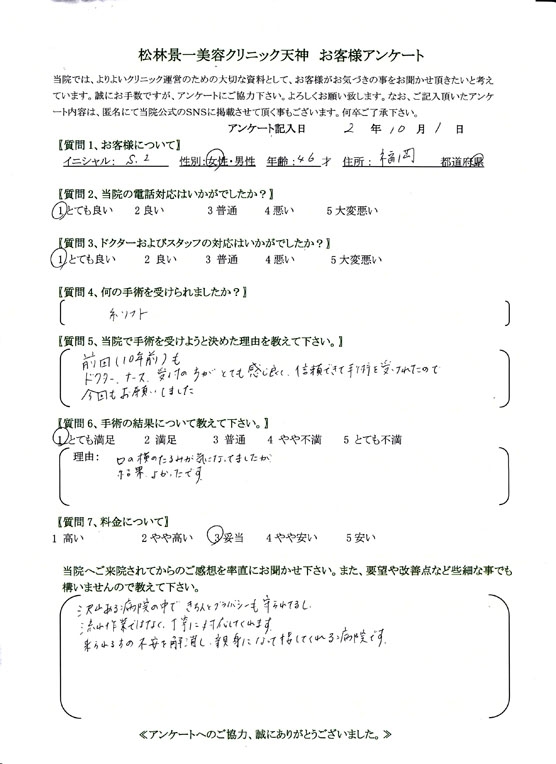 松林景一美容クリニック天神　お客様アンケート
当院では、よりよいクリニック運営のための大切な資料として、お客様がお気づきの事をお聞かせ頂きたいと考え
ています。誠にお手数ですが、アンケートにご協力下さい。よろしくお願い致します。なお、ご記入頂いたアンケ
ート内容は、匿名にて当院公式のSNSに掲載させて頂く事もございます。何卒ご了承下さい。
アンケート記入日　2 年 10 月 1 日
〖質問1、お客様について〗
イニシャル： S.I　性別：女性・男性　年齢：46 才　住所： 福岡　都道府県
〖質問2、当院の電話対応はいかがでしたか？〗
1 とても良い　2 良い　3 普通　4 悪い　5 大変悪い
〖質問3、ドクターおよびスタッフの対応はいかがでしたか？〗
1 とても良い　2 良い　3 普通　4 悪い　5 大変悪い
〖質問4、何の手術を受けられましたか？〗
糸リフト
〖質問5、当院で手術を受けようと決めた理由を教えて下さい。〗
前回(10年前)も
ドクター、ナース、受付の方がとても感じ良く、信頼できて手術を受けれたので
今回もお願いしました
〖質問6、手術の結果について教えて下さい。〗
1 とても満足　2 満足　3 普通　4 やや不満　5 とても不満
理由： 口の横のたるみが気になってましたが
結果よかったです
〖質問7、料金について〗
1 高い　2 やや高い　3 妥当　4 やや安い　5 安い
当院へご来院されてからのご感想を率直にお聞かせ下さい。また、要望や改善点など些細な事でも
構いませんので教えて下さい。
沢山ある病院の中で きちんとプライバシーも守られてるし、
流れ作業ではなく、丁寧に対応してくれます
来られる方の不安を解消し、親身になって接してくれる病院です。
≪アンケートへのご協力、誠にありがとうございました。≫